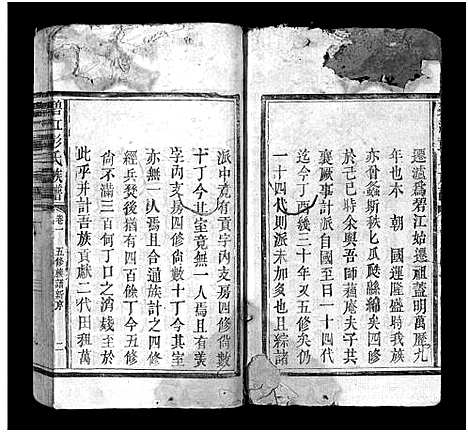 遷瀘爲碧江始遷祖蓋明萬歷九
年也本　朝　國運隆盛時我族
亦曾螽斯秩匕瓜瓞緜綿矣四修
於己巳時余與吾師藕庵夫子共
襄厥事計派自國至日一十四代
迄今丁酉幾三十年又五修矣仍
一十四代則派未加多也且綜諸
派中竟有貢字內支房四修尙數
十丁今其室竟無一人焉且有美
字內又支房四修尙數十丁今其室
亦無一人焉且合通族計之四修
經兵燹後猶有四百餘丁今五修
尙不滿三百何丁口之消殘至於
此乎并計吾族貢獻二代田租萬
碧江彭氏族譜
卷一
五修族譜新序
二